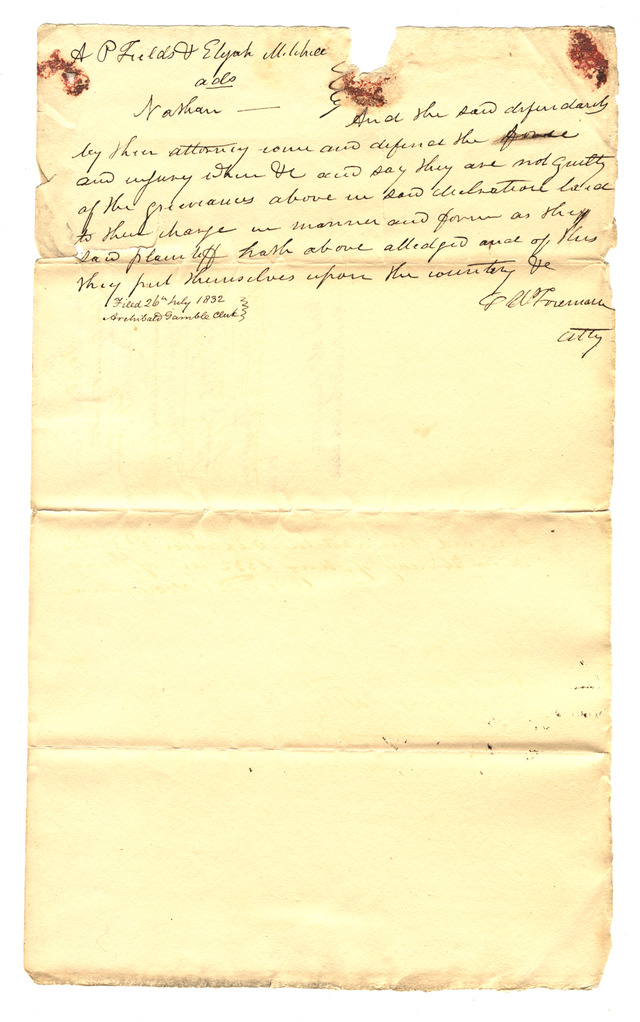 A P Fields & Elijah Mitchell
ads
Nathan —
And the said defendants
by their attorney come and defend the force
and injury when &c and say they are not guilty
of the grievances above in said declaration laid
to their charge in manner and form as the
said plaintiff hath above alledged and of this
they put themselves upon the country &c
Filed 26th July 1832
Archibald Gamble Clerk
Foreman
atty